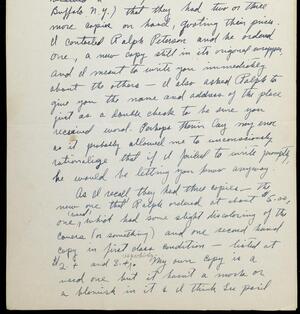 Buffalo N.Y.) that they had two or three
more copies on hand, quoting their prices.
I contacted Ralph Peterson and he ordered
one, a new copy still in its original wrapper,
And I meant to write you immediately
about the others — I also asked Ralph to
give you the name and address of the place
just as a double check to be sure you
received word. Perhaps
as it probably allowed me to unconsciously
rationalize that if I failed to write promptly,
he would be letting you know anyway.
As I recall they had three copies — the
new one that Ralph ordered at about $5.00,
one, (used) which had some slight discoloring of the
covers (or something) and one second hand
copy in first class condition — listed at
$2+ and 3.+, My own copy is a
used one but it hasn't a mark or
a blemish in it & I think I paid